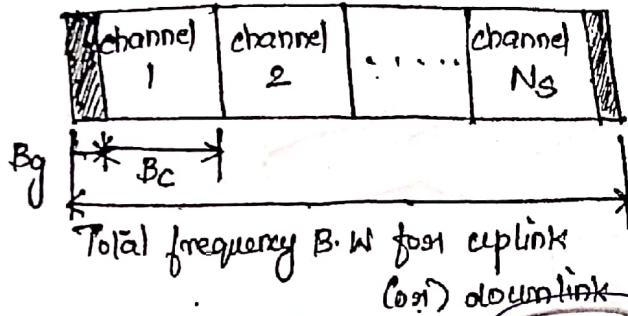 channel channel ..... channel
1 2 Ns
Bg Bc
Total frequency B.W for uplink
(or) downlink